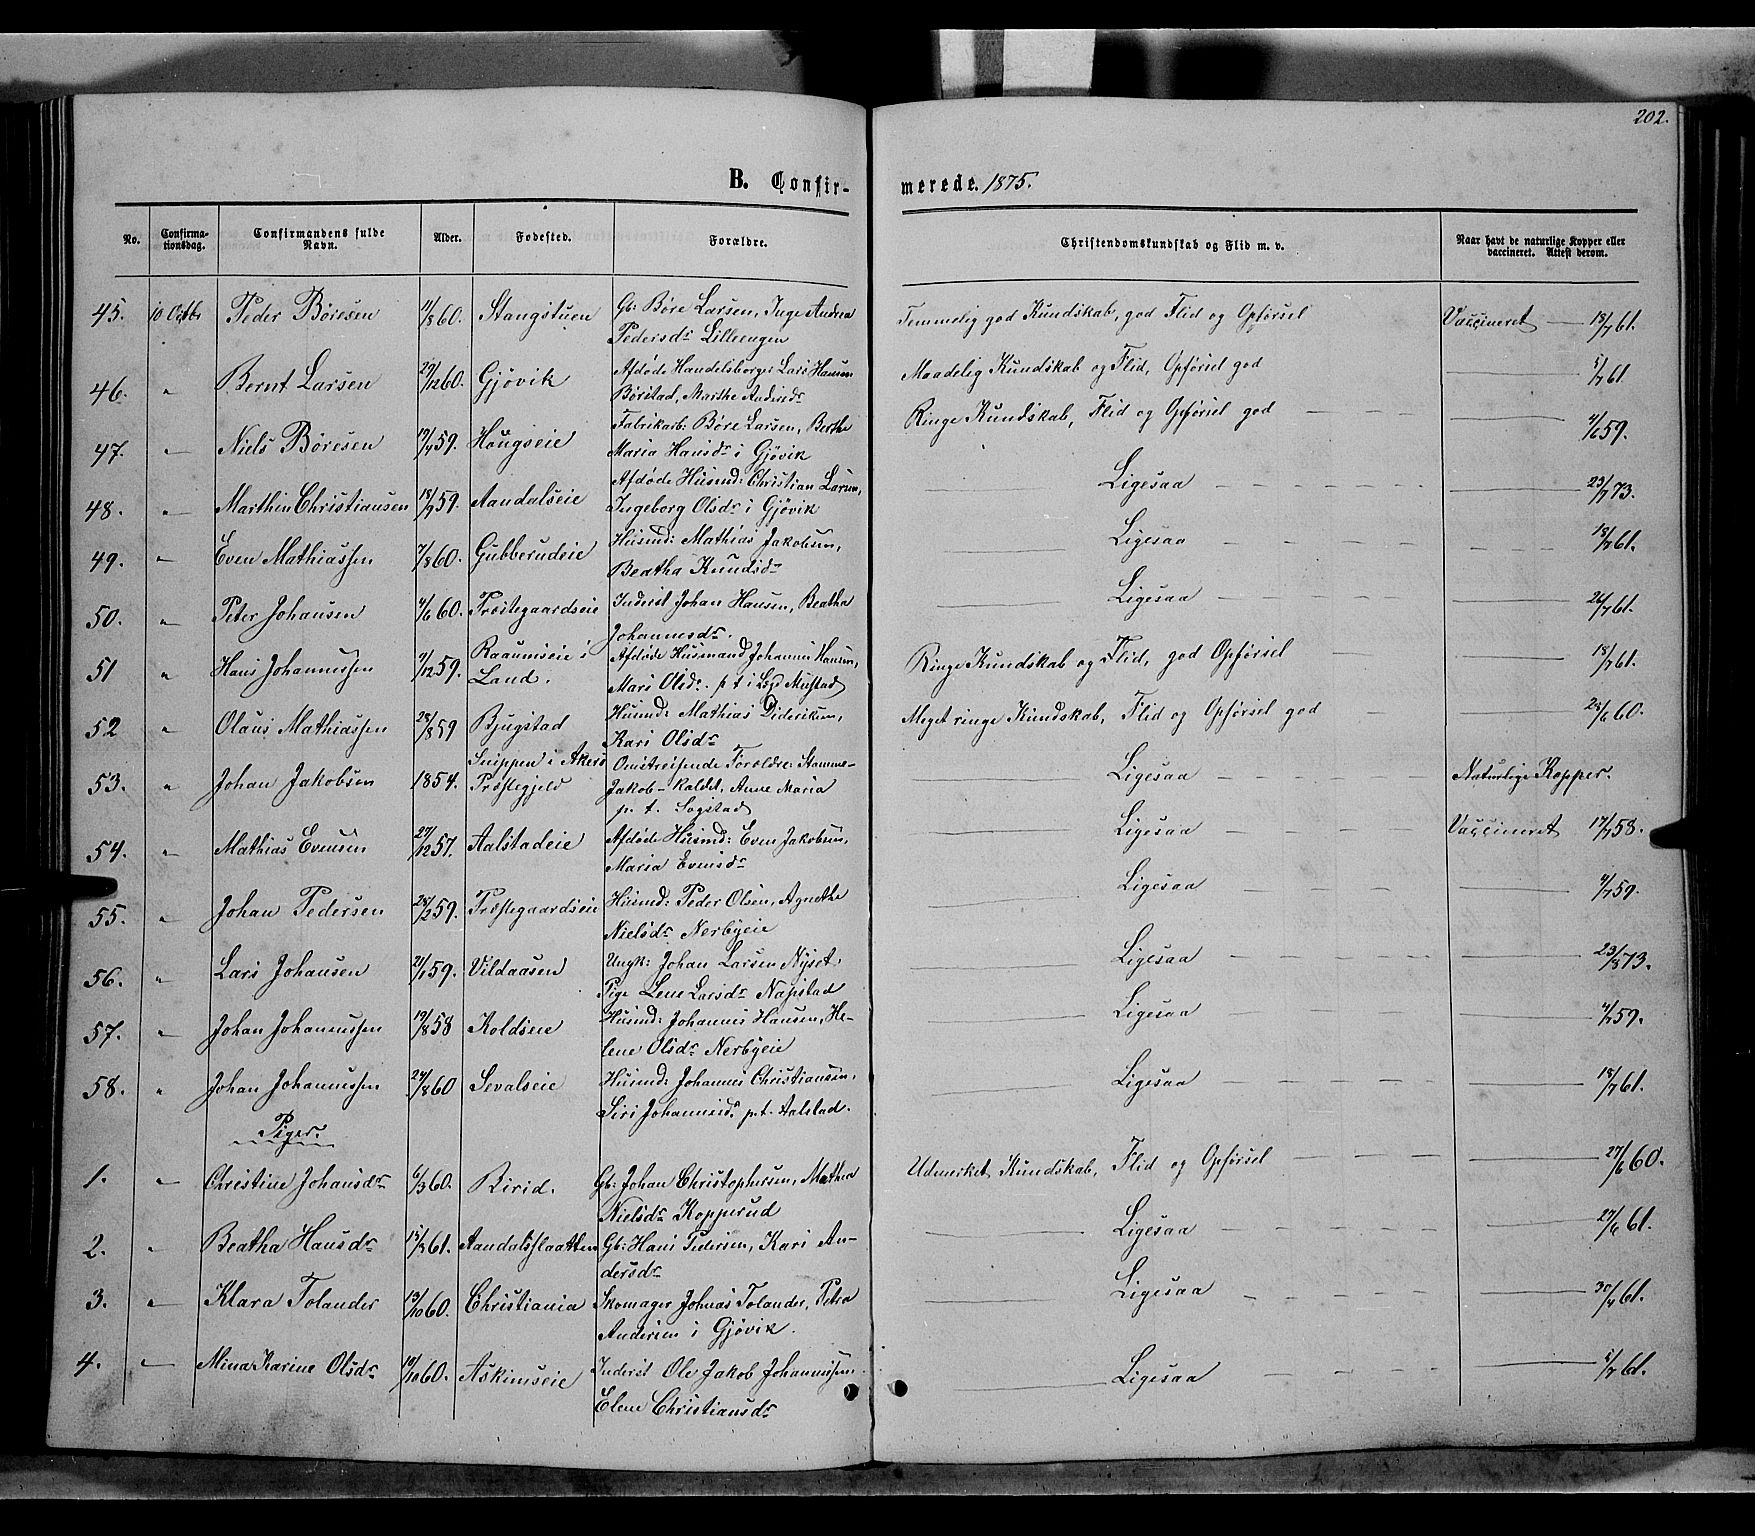 202.
B. Confirmerede. 1875.
No. Confirmationsdag. Confirmandens fulde Navn. Alder. Fødested. Forældre. Christendomskundskab og Flid m. v. Naar havt de naturlige Kopper eller vaccineret. Attest derom.
45. 10 Octbr Peder Børesen 11/8 60. Stangstuen Gb: Børe Larsen, Inge Andrea Temmelig god Kundskab, god Flid og Opførsel Vaccineret 18/7 61.
Pedersdr Lilleengen
46. " Bernt Larsen 29/12 60. Gjøvik Afdøde Handelsborger Lars Hansen Maadelig Kundskab og Flid, Opførsel god 5/7 61.
Børstad, Marthe Andersdr
47. " Niels Børesen 19/4 59. Haugseie Fabrikarb: Børe Larsen, Berthe Ringe Kundskab, Flid og Opførsel god 4/6 59.
Maria Hansdr i Gjøvik
48. " Marthin Christiansen 18/9 59. Aandalseie Afdøde Husmd: Christian Larsen, Ligesaa 23/7 73.
Ingeborg Olsdr i Gjøvik
49. " Even Mathiassen 7/8 60. Gubberudeie Husmd: Mathias Jakobsen, Ligesaa 18/7 61.
Beatha Knudsdr
50. " Peter Johansen 4/6 60. Præstegaardseie Inderst Johan Hansen, Beatha Ligesaa 26/7 61.
Johannesdr.
51 " Hans Johannessen 4/12 59. Raaumseie i Afdøde Husmand Johannes Hansen, Ringe Kundskab og Flid, god Opførsel 18/7 61.
Land. Mari Olsdr. p t i Lægd Mustad
52 " Olaus Mathiassen 28/8 59 Bjugstad Husmd: Mathias Didriksen, Meget ringe Kundskab, Flid og Opførsel god 28/6 60.
Kari Olsdr
53. " Johan Jakobsen 1854. Snippen i Akers Omstreifende Forældre: Stamme- Ligesaa Naturlige Kopper.
Præstegjeld Jakob-kaldet, Anne Maria
p. t. Sogstad
54. " Mathias Evensen 27/12 57. Aalstadeie Afdøde Husmd: Even Jakobsen, Ligesaa Vaccineret 17/7 58.
Maria Evensdr
55. " Johan Pedersen 28/2 59. Præstegaardseie Husmd: Peder Olsen, Agnethe Ligesaa 4/7 59.
Nielsdr Nerbyeie
56. " Lars Johansen 21/1 59. Vildaasen Ungk: Johan Larsen Nyset. Ligesaa 23/8 73.
Pige Lene Larsdr Nøpstad
57. " Johan Johannessen 19/8 58 Koldseie Husmd: Johannes Hansen, He- Ligesaa 4/7 59.
lene Olsdr Nerbyeie
58. " Johan Johannessen 24/8 60 Sevalseie Husmd: Johannes Christiansen, Ligesaa 18/7 61.
Siri Johannesdr p.t. Aalstad.
Piger.
1. " Christine Johansdr 6/3 60. Birid. Gb: Johan Christophersen, Mathea Udmerket Kundskab, Flid og Opførsel 27/6 60.
Nielsdr Kopperud
2. " Beatha Hansdr 15/3 61. Aandalsflaatten Gb: Hans Pedersen, Kari An- Ligesaa 27/6 61.
dersdr
3. " Klara Tolander 13/10 60. Christiania Skomager Johnas Tolander, Petra Ligesaa 30/7 61.
Andersen i Gjøvik.
4. " Mina Karine Olsdr 19/10 60. Askimseie Inderst Ole Jakob Johannessen Ligesaa 5/7 61.
Elene Christiansdr